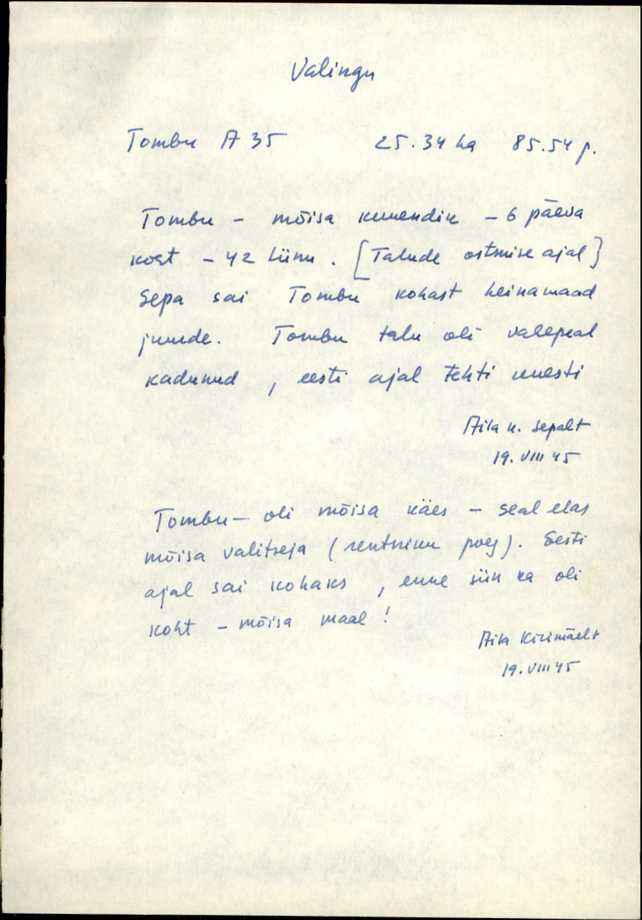 Valingu
Tombu A 35 25.34 ha 85.54 p.
Tombu - mõisa kümendik - 6 päeva
koht - 42 tiinu. [Talude ostmise ajal]
Sepa sai Tombu kohast heinamaad
juurde. Tombu talu oli vahepeal
kadunud, eesti ajal tehti uuesti
Sepalt
19. VIII 45
Tombu - oli mõisa käes - seal elas
mõisa valitseja (rentniku poeg). Eesti
ajal sai kohaks, enne siin ka oli
koht - mõisa maal!
Kirimäelt
19. VIII 45